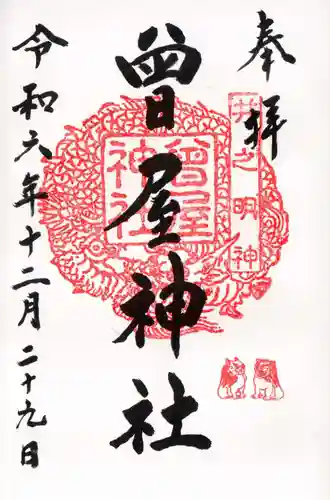 奉拝
井之明神
曾屋神社
曾屋神社
令和六年十二月二十九日